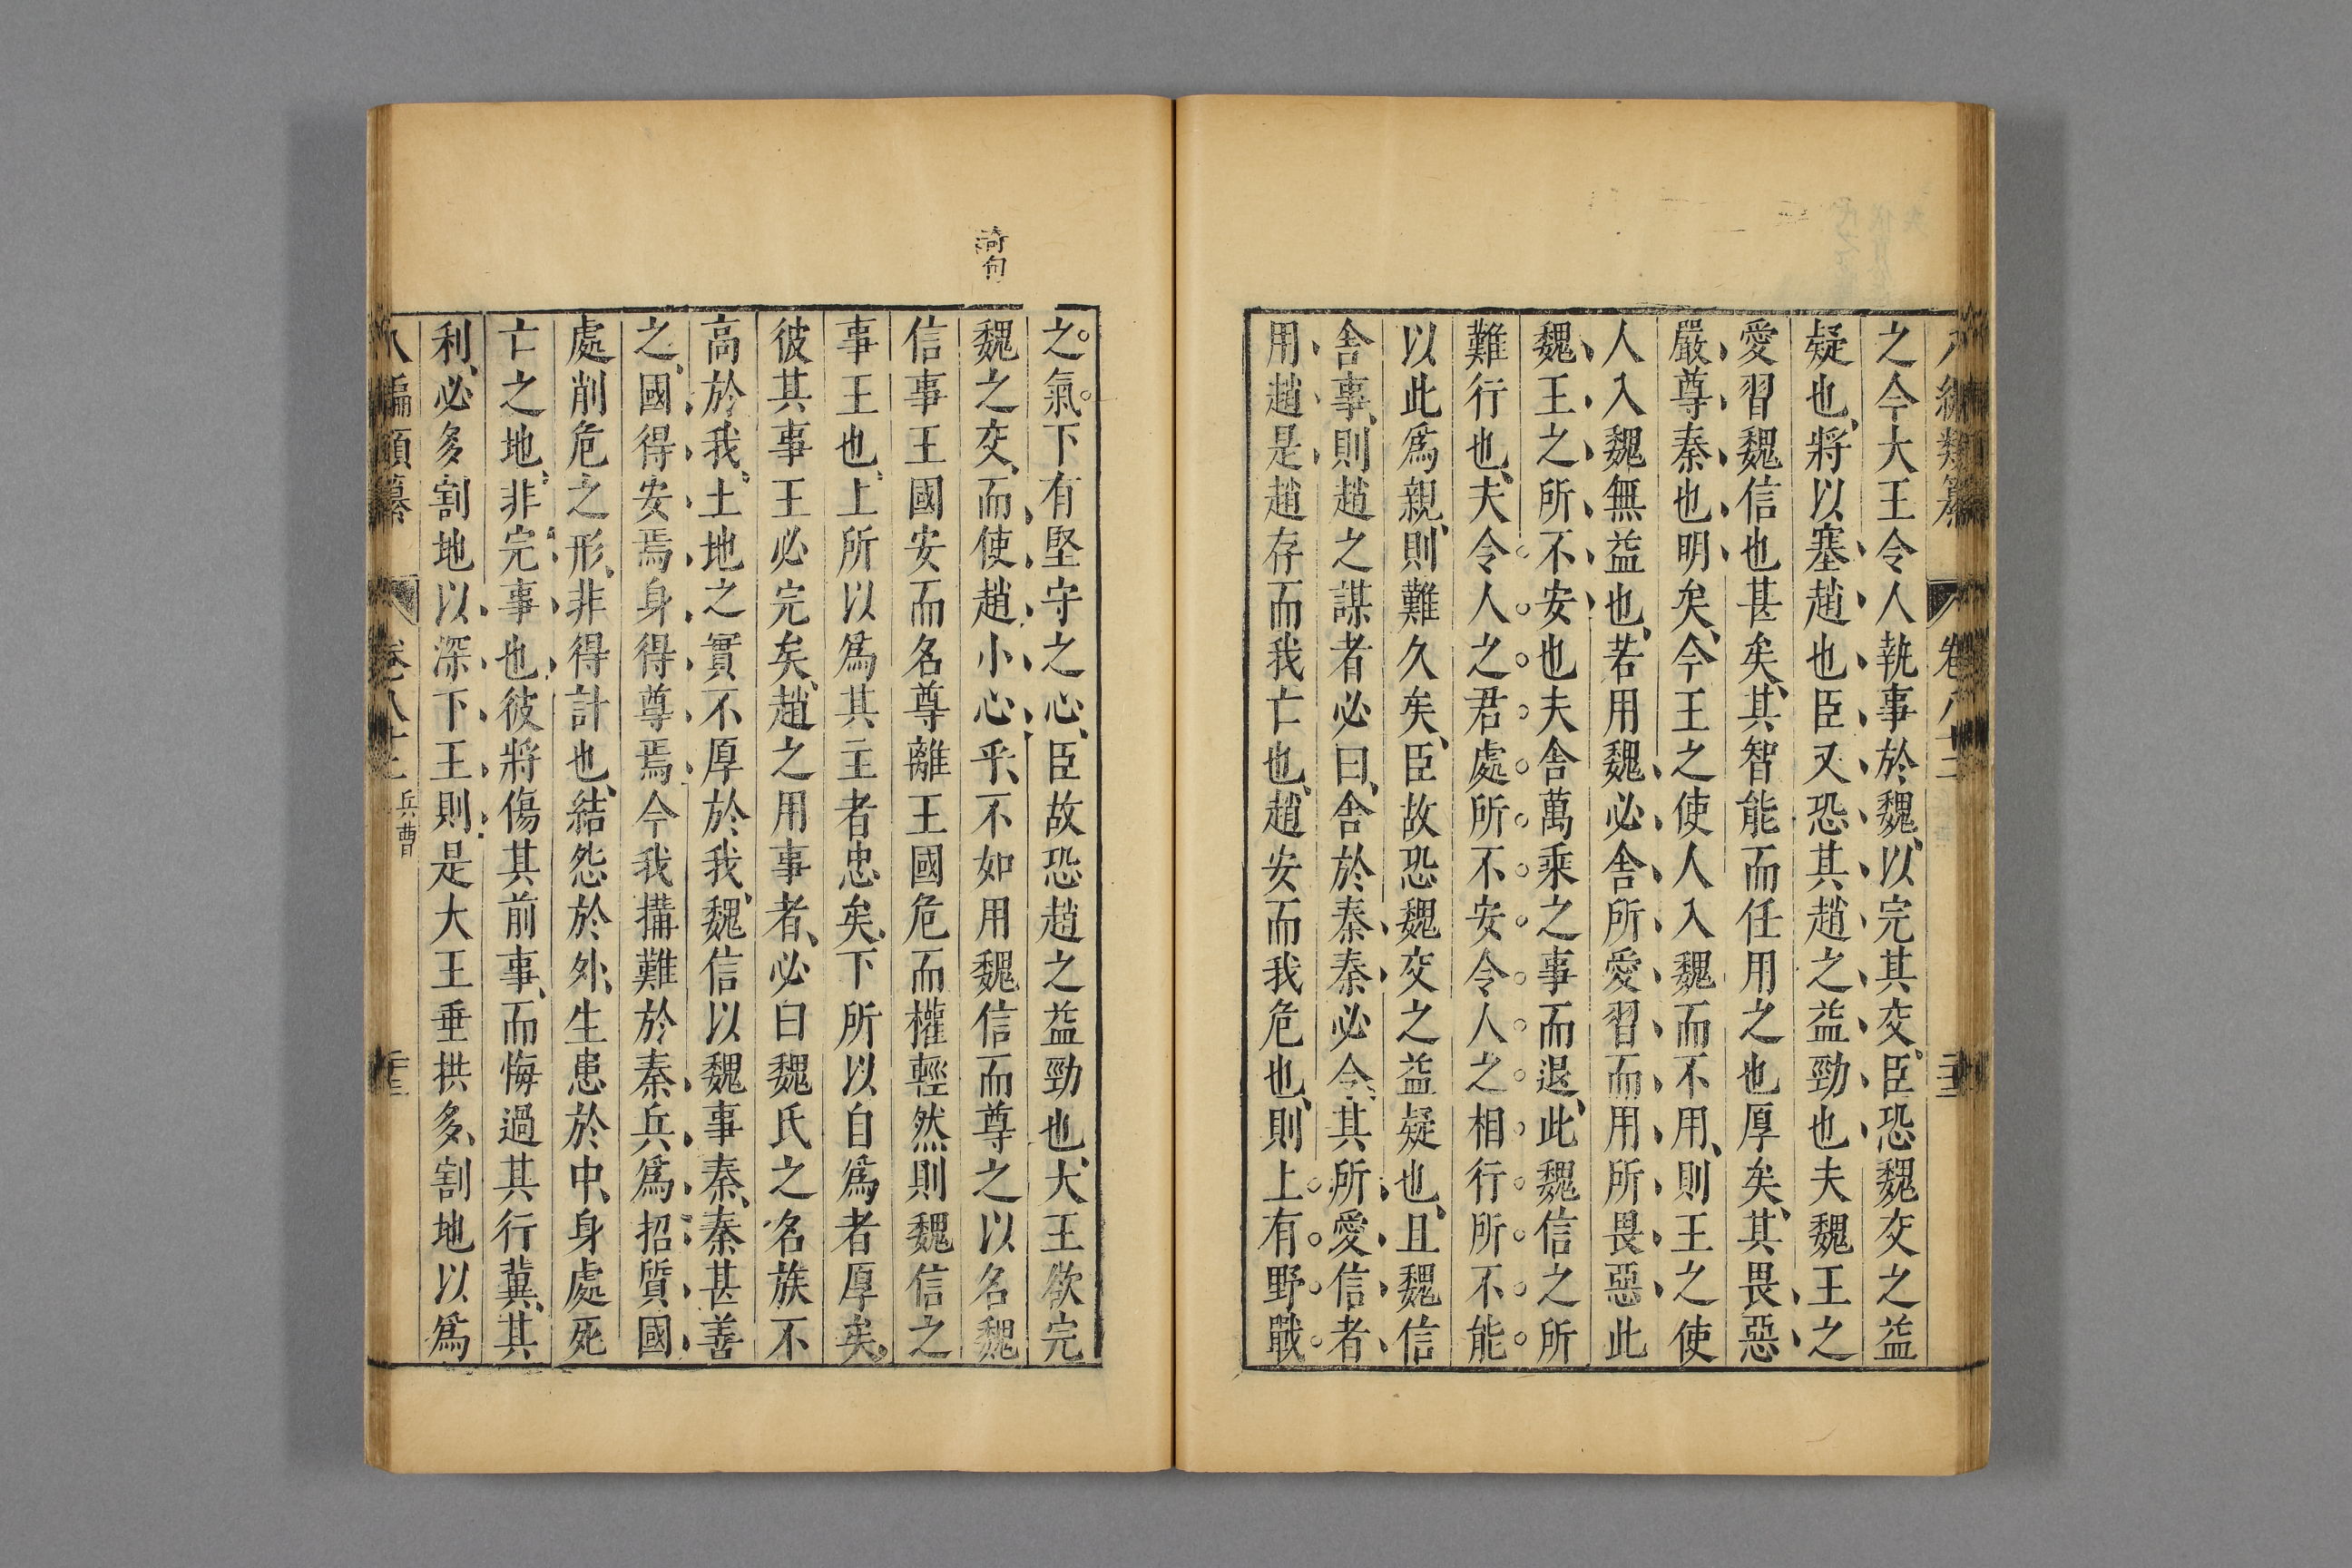 之今大王令人執事於魏以完其交臣恐魏交之益
疑也將以塞趙也臣又恐其趙之益勁也夫魏王之
愛習魏信也甚矣其智能而任用之也厚矣其畏惡
嚴尊秦也明矣今王之使人入魏而不用則王之使
人入魏無益也若用魏必舍所愛習而用所畏惡此
魏王之所不安也夫舍萬乘之事而退此魏信之所
難行也夫令人之君處所不安令人之相行所不能
以此爲親則難久矣臣故恐魏交之益疑也且魏信
舍事則趙之謀者必曰舍於秦秦必令其所愛信者
用趙是趙存而我亡也趙安而我危也則上有野戰
之氣下有堅守之心臣故恐趙之益勁也大王欲完
奇句
魏之交而使趙小心乎不如用魏信而尊之以名魏
信事王國安而名尊離王國危而權輕然則魏信之
事王也上所以爲其主者忠矣下所以自爲者厚矣
彼其事王必完矣趙之用事者必曰魏氏之名族不
高於我土地之實不厚於我魏信以魏事秦秦甚善
之國得安焉身得尊焉今我搆難於秦兵爲招質國
處削危之形非得計也結怨於外生患於中身處死
亡之地非完事也彼將傷其前事而悔過其行冀其
利必多割地以深下王則是大王垂拱多割地以爲
八編類纂 卷八十三 兵曹